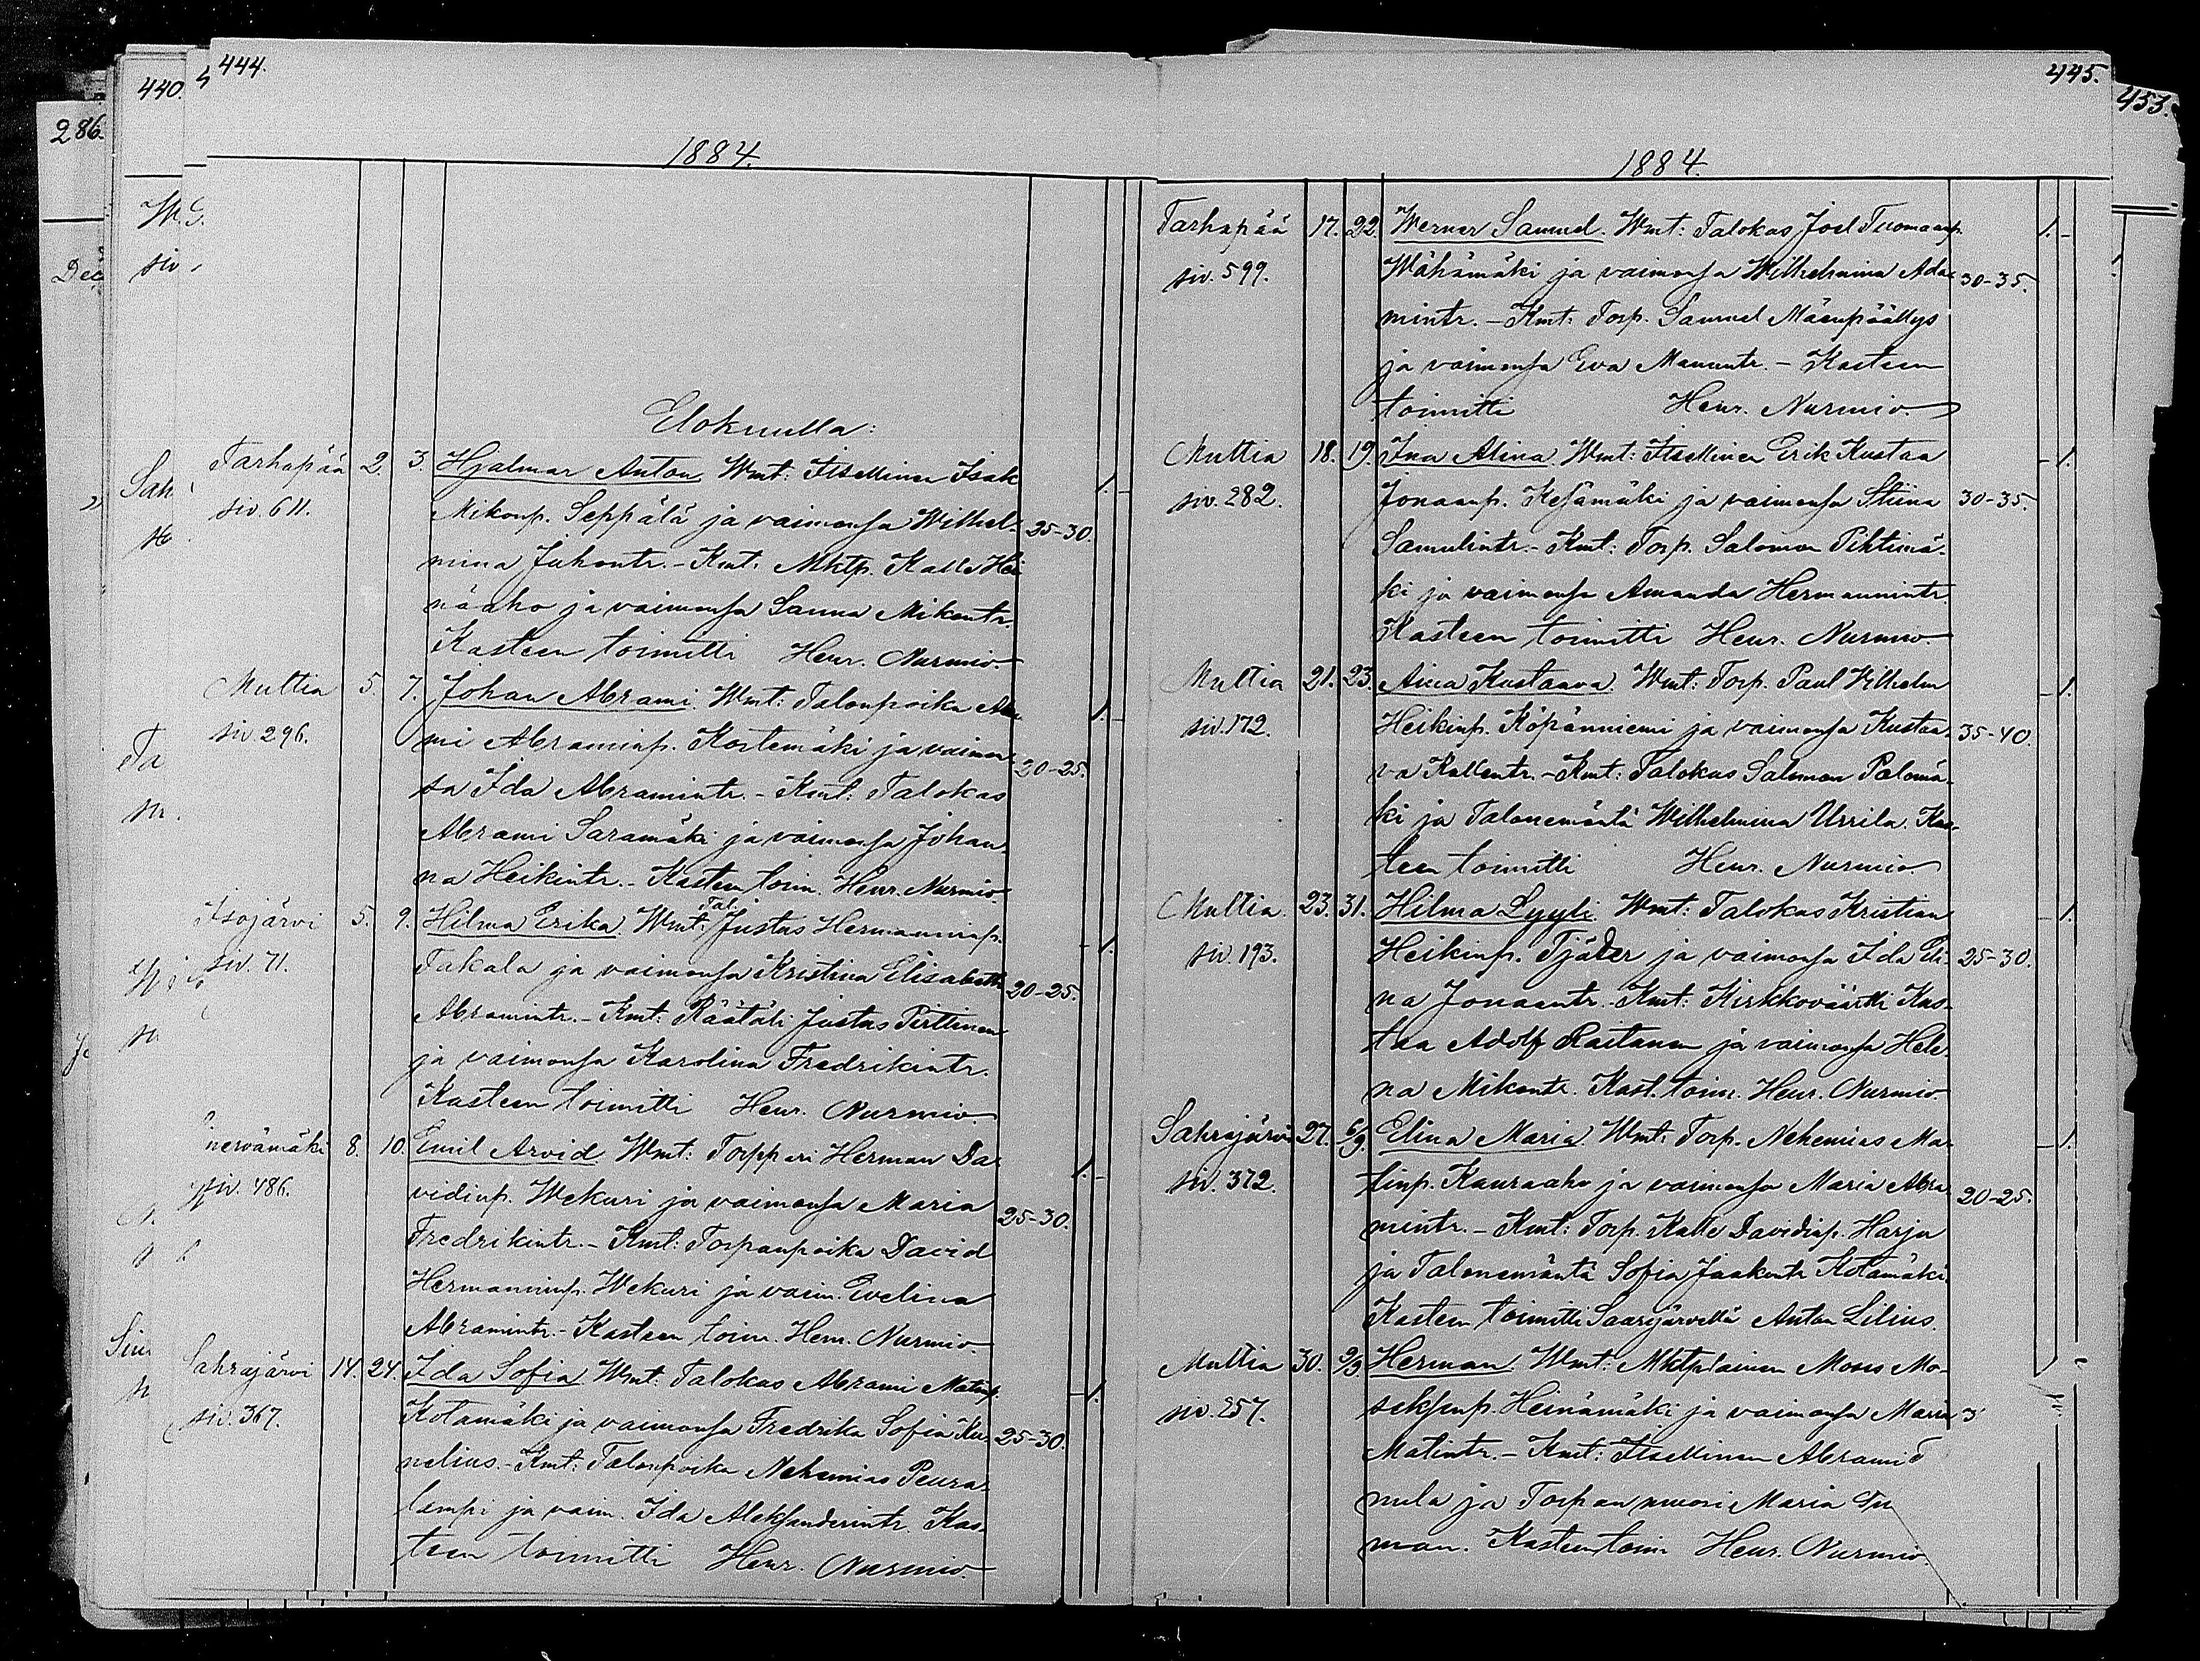 286.
440.
444.
1884.
Elokuulla:
Tarhapää 2. 3. Hjalmar Anton. Wmt: Itsellinen Isak
siv. 611. Mikonp. Seppälä ja vaimonsa Wilhel- 25-30. 1.
mina Juhontr. - Kmt: Mktp. Kalle Hei
näaho ja vaimonsa Sanna Mikontr.
Kasteen toimitti Henr. Nurmio.
Multia 5. 7. Johan Abrami. Wmt: Talonpoika Abra
siv. 296. mi Abraminp. Kostemäki ja vaimon- 20-25. 1.
sa Ida Abramintr. - Kmt: Talokas
Abrami Saramäki ja vaimonsa Johan-
na Heikintr. - Kasteen toim. Henr. Nurmio.
Isojärvi 5. 9. Hilma Erika. Wmt: Tal. Justus Hermanninp.
siv. 71. Takala ja vaimonsa Kristina Elisabeth 20-25. 1.
Abramintr. - Kmt: Räätäli Justus Pirttinen
ja vaimonsa Karolina Fredrikintr.
Kasteen toimitti Henr. Nurmio.
nervämäki 8. 10. Emil Arvid. Wmt: Torppari Herman Da-
siv. 486. vidinp. Wekuri ja vaimonsa Maria 25-30. 1.
Fredrikintr. - Kmt: Torpanpoika David
Hermanninp. Wekuri ja vaim. Evelina
Abramintr. - Kasteen toim. Henr. Nurmio.
Sahrajärvi 14. 24. Ida Sofia. Wmt: Talokas Abrami Matinp.
siv. 367. Kotamäki ja vaimonsa Fredrika Sofia Ku- 25-30. 1.
nelius. - Kmt: Talonpoika Nehemias Peura-
lampi ja vaim. Ida Aleksanderintr. Kas-
teen toimitti Henr. Nurmio.
445.
453.
1884.
Tarhapää 17. 22. Werner Samuel. Wmt: Talokas Joel Tuomaanp. 1.
siv. 599. Wähämäki ja vaimonsa Wilhelmina Ada- 30-35.
mintr. - Kmt: Torp. Samuel Mäenpäällys
ja vaimonsa Eva Manuntr. - Kasteen
toimitti Henr. Nurmio.
Multia 18. 19. Ina Alina. Wmt: Itsellinen Erik Kustaa 1.
siv. 282. Jonaanp. Kesämäki ja vaimonsa Stiina 30-35.
Samulintr. - Kmt: Torp. Salomon Pihtimä-
ki ja vaimonsa Amanda Hermannintr.
Kasteen toimitti Henr. Nurmio.
Multia 21. 23. Aina Kustaava. Wmt: Torp. Paul Vilhelm 1.
siv. 172. Heikinp. Köpänniemi ja vaimonsa Kustaa- 35-40.
va Kallentr. - Kmt: Talokas Salomon Palomä-
ki ja Talonemäntä Wilhelmina Urrila. Kas-
teen toimitti Henr. Nurmio.
Multia 23. 31. Hilma Lyyli. Wmt: Talokas Kristian 1.
siv. 193. Heikinp. Tjäder ja vaimonsa Ida Eli- 25-30.
na Jonaantr. - Kmt: Kirkkoväärtti Kus-
taa Adolf Rastanen ja vaimonsa Hele-
na Mikontr. Kast. toim. Henr. Nurmio.
Sahrajärvi 27. 6/9. Elina Maria. Wmt: Torp. Nehemias Mar- 1.
siv. 372. tinp. Kauraaho ja vaimonsa Maria Abra- 20-25.
mintr. - Kmt: Torp. Kalle Davidinp. Harju
ja Talonemäntä Sofia Jaakontr. Kotamäki.
Kasteen toimitti Saarijärvellä Anton Lilius.
Multia 30. 9/9 Herman. Wmt: Mktplainen Moses Mo-
siv. 257. seksenp. Heinämäki ja vaimonsa Maria 3 1.
Matintr. - Kmt: Itsellinen Abrami
nula ja Torpan muori Maria
man. Kasteen toim Henr. Nurmio